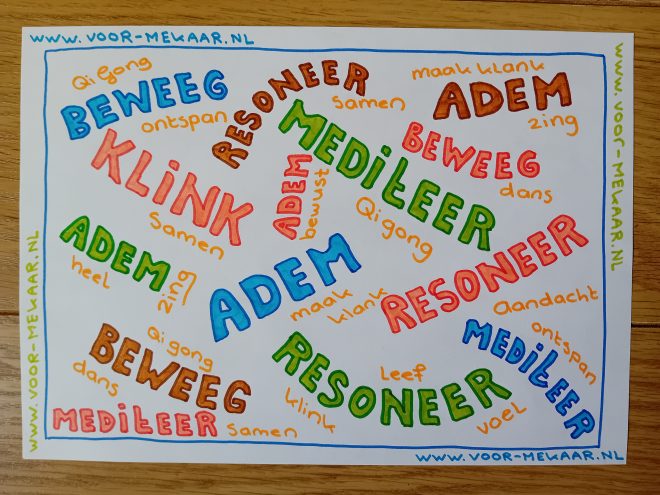 www.voor-mekaar.nl
Qigong
BEWEEG
ontspan
RESONEER
samen
maak klank
ADEM
zing
KLiNK
samen
ADEM
bewust
MEDiTEER
Qigong
BEWEEG
dans
ADEM
heel
zing
ADEM
maak
klank
RESONEER
aandacht
Qigong
BEWEEG
dans
MEDiTEER
samen
RESONEER
leef
klink
voel
MEDiTEER
ontspan
www.voor-mekaar.nl
www.voor-mekaar.nl
www.voor-mekaar.nl